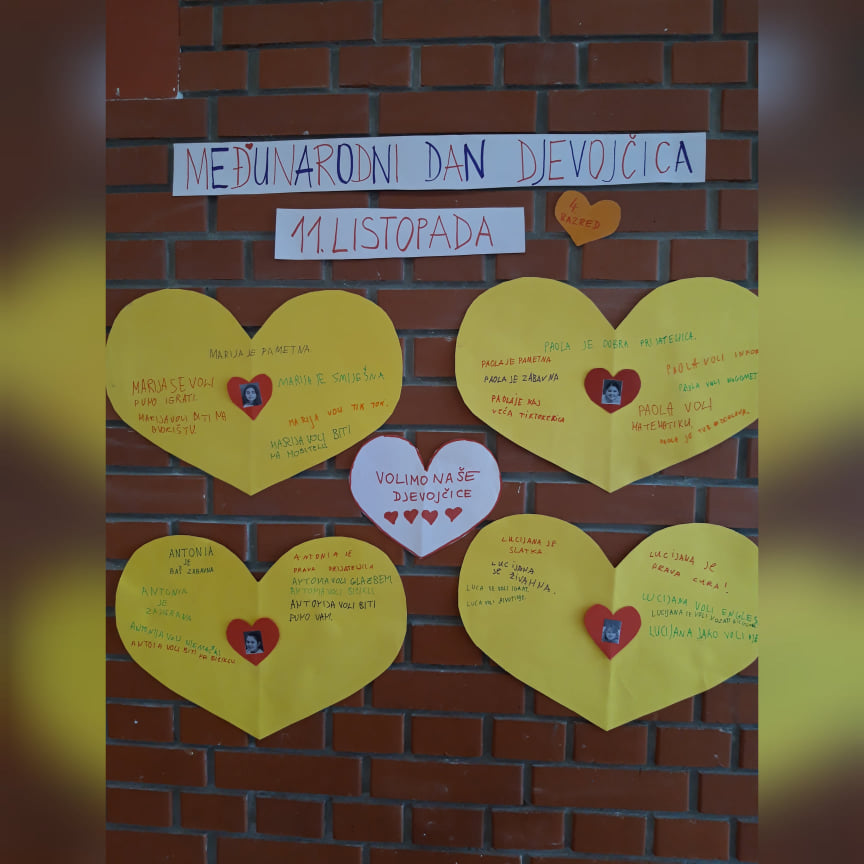 MEĐUNARODNI DAN DJEVOJČICA
11. LISTOPADA
4.
RAZRED
MARIJA JE PAMETNA.
MARIJA SE VOLI
PUNO IGRATI.
MARIJA VOLI BITI NA
DVORIŠTU.
MARIJA JE SMIJEŠNA
MARIJA VOLI TIK TOK.
MARIJA VOLI BITI
NA MOBITELU
PAOLA JE DOBRA PRIJATELJICA.
PAOLA JE PAMETNA
PAOLA JE ZABAVNA
PAOLA JE NAJ
VEĆA TIKTOKERICA
PAOLA VOLI
PAOLA VOLI NOGOMET
PAOLA VOLI
MATEMATIKU.
PAOLA JE
VOLIMO NAŠE
DJEVOJČICE
ANTONIA
JE
BAŠ ZABAVNA
ANTONIA
JE
ZAIGRANA
ANTONIJA VOLI
ANTONIA VOLI BITI NA BICIKLU.
ANTONIA JE
PRAVA PRIJATELJICA
ANTONIA VOLI GLAZBENI
ANTONIA VOLI BICIKL
ANTONIJA VOLI BITI
PUNO VANI.
LUCIJANA JE
SLATKA
LUCIJANA
JE ŽIVAHNA.
LUCA SE VOLI IGRATI.
LUCA VOLI ŽIVOTINJE.
LUCIJANA JE
PRAVA CURA!
LUCIJANA VOLI ENGLES
LUCIJANA SE VOLI VOZATI
LUCIJANA JAKO VOLI